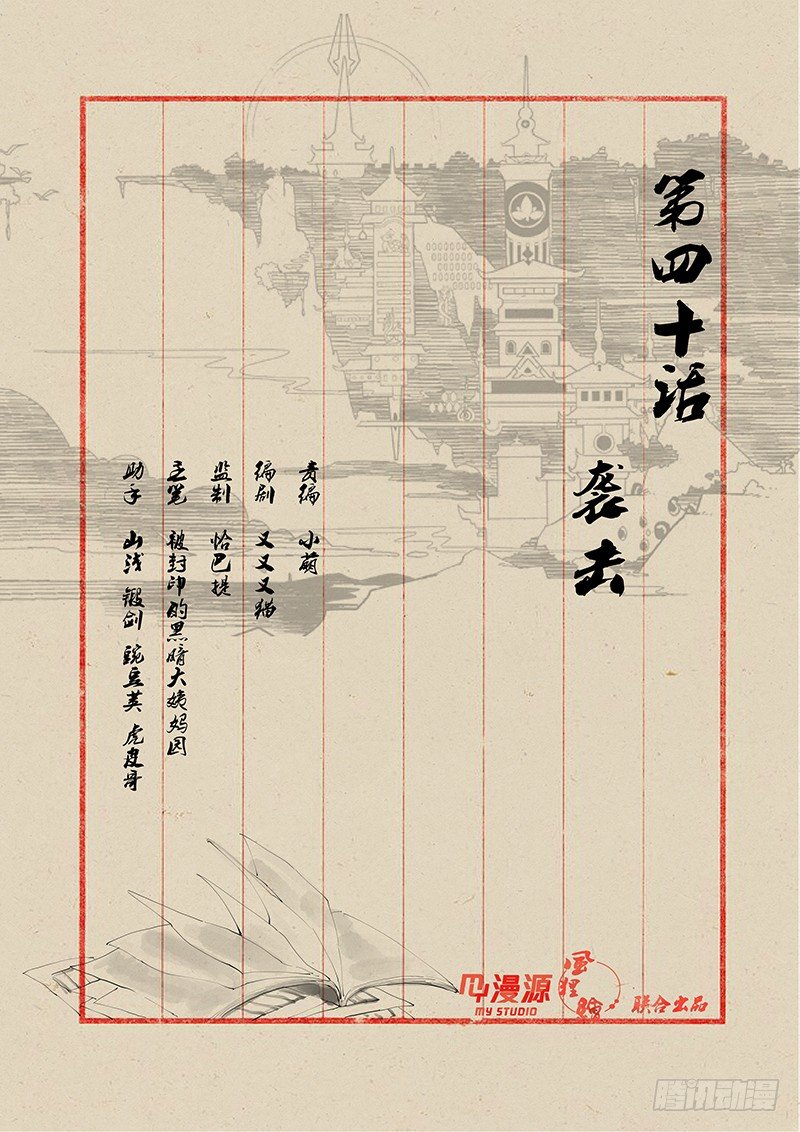 第四十话
袭击
责编 小萌
编剧 又又又猫
监制 恰巴提
主笔 被封印的黑暗大姨妈园
助手 山浅 锻剑 豌豆荚 虎皮哥
漫源
MY STUDIO
联合出品
腾讯动漫